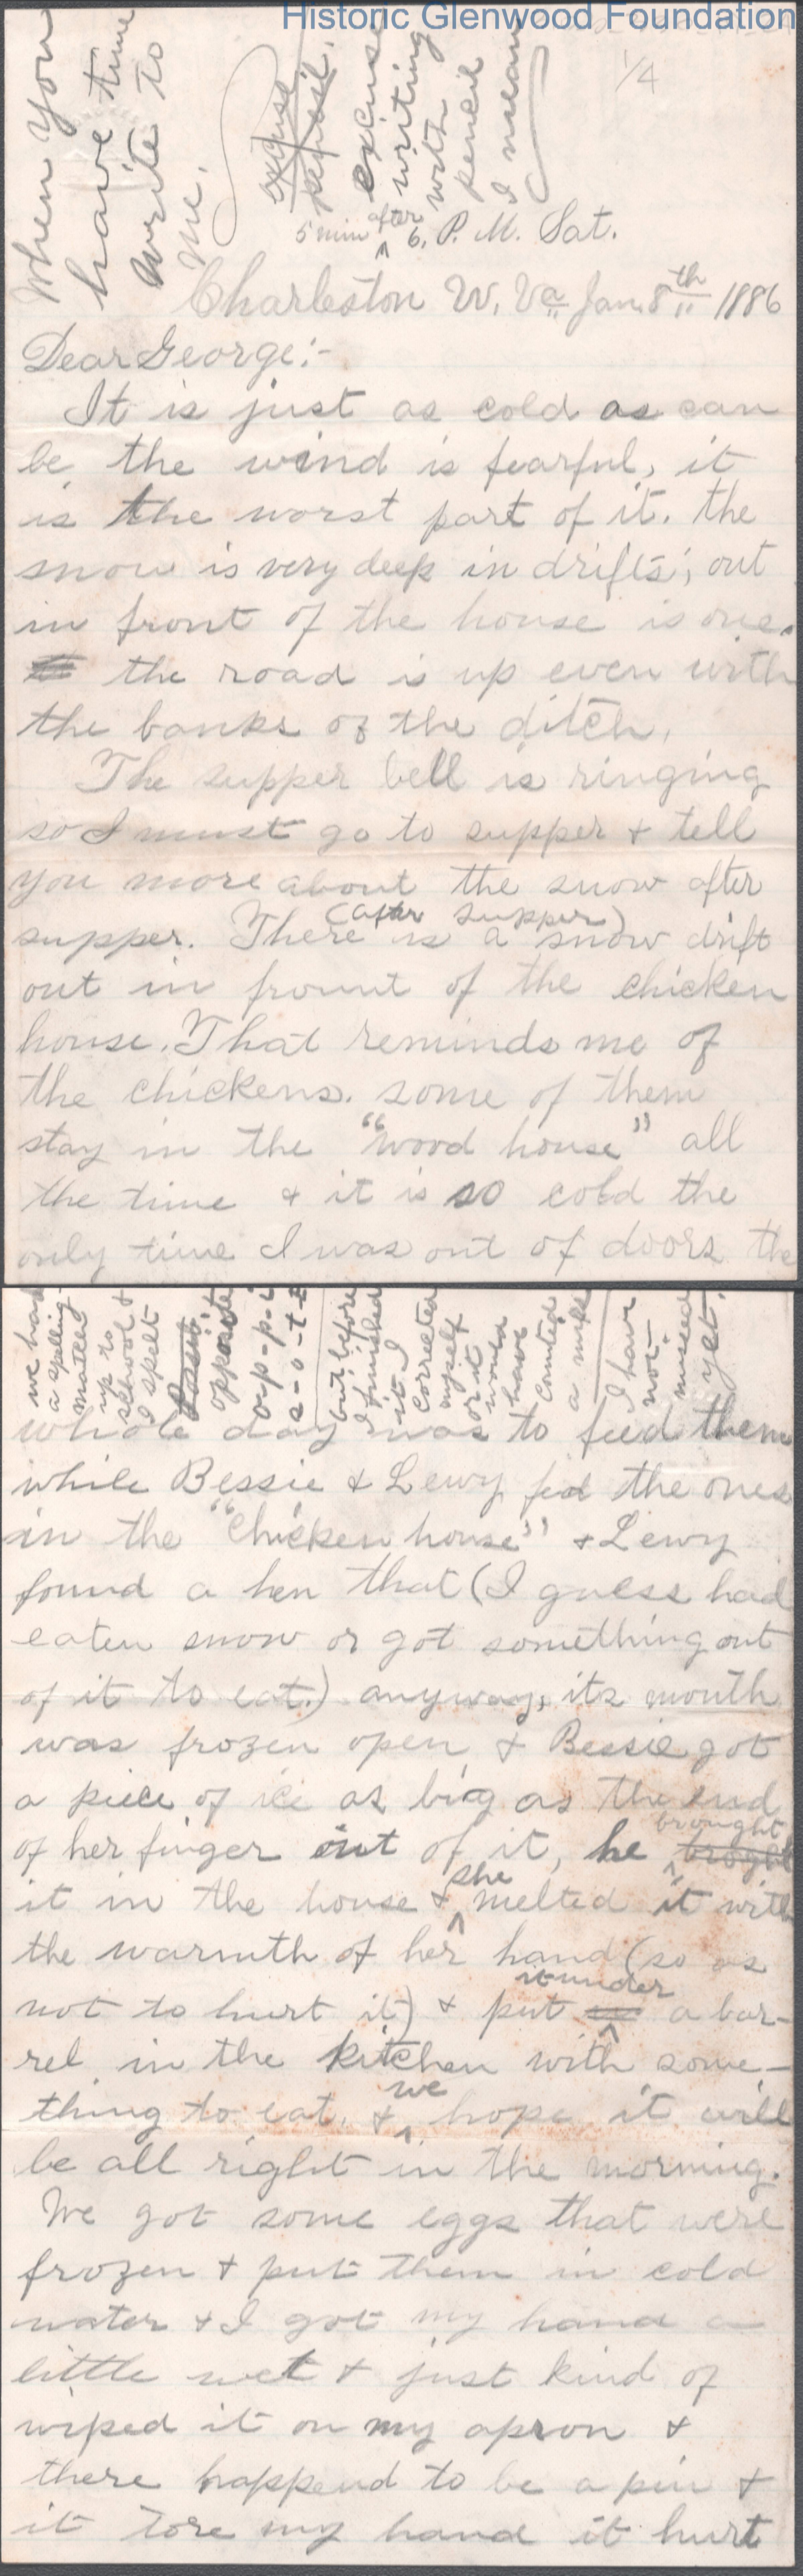 Historic Glenwood Foundation
1/4
When you
have time
write to
me.
excuse
pencil.
excuse
writing
with
pencil
I mean
5 min after 6, P. M. Sat.
Charleston W. Va Jan. 8th 1886
Dear George:-
It is just as cold as can
be the wind is fearful, it
is the worst part of it. the
snow is very deep in drifts; out
in front of the house is one.
the road is up even with
the banks of the ditch.
The supper bell is ringing
so I must go to supper & tell
you more about the snow after
supper. (after supper) There is a snow drift
out in frount of the chicken
house. That reminds me of
the chickens. some of them
stay in the "wood house" all
the time & it is so cold the
only time I was out of doors the
we had
a spelling
match
up to
school &
I spelt
opposite
o-p-p-o-
s-i-t-e
but before
I finished
it I
corrected
myself
or it
would
have
counted
a miss
I have
not
missed
yet.
whole day was to feed them
while Bessie & Lewy fed the ones
in the "Chicken house" & Lewy
found a hen that (I guess had
eaten snow or got something out
of it to eat.) anyway, its mouth
was frozen open & Bessie got
a piece of ice as big as the end
of her finger out of it, he brought broght
it in the house & she melted it with
the warmth of her hand (so as
not to hurt it) & put it under a bar-
rel in the kitchen with some-
thing to eat. & we hope it will
be all right in the morning.
We got some eggs that were
frozen & put them in cold
water & I got my hand a
little wet & just kind of
wiped it on my apron &
there happend to be a pin &
it tore my hand it hurt